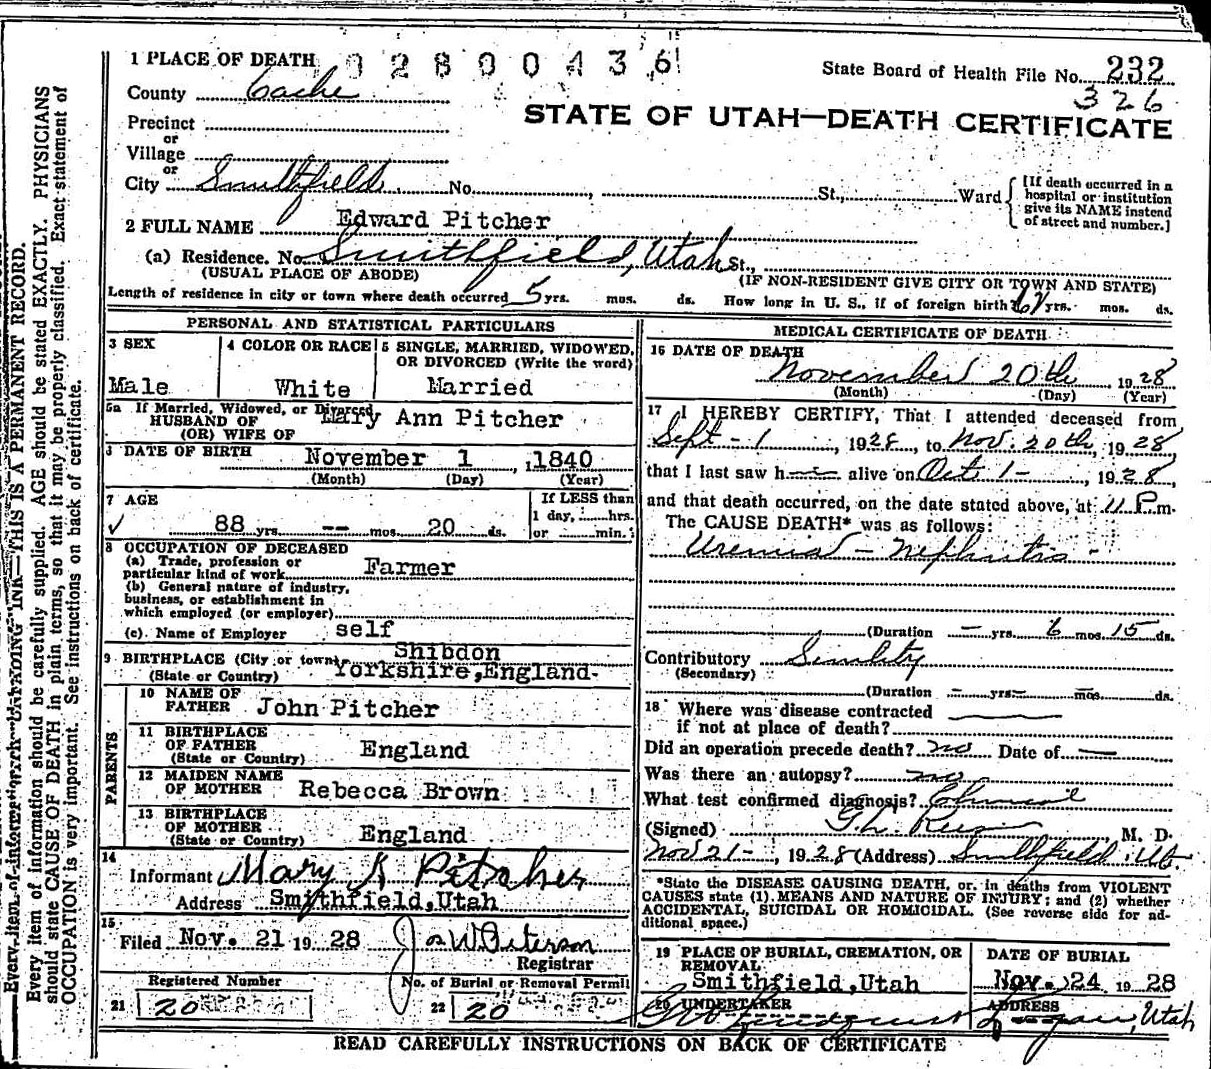 1 PLACE OF DEATH 02800436
State Board of Health File No. 232
County Cache 326
STATE OF UTAH—DEATH CERTIFICATE
Precinct
or
Village
or
City Smithfield No. , St., Ward
[If death occurred in a hospital or institution give its NAME instead of street and number.]
2 FULL NAME Edward Pitcher
(a) Residence. No. Smithfield, Utah St.,
(USUAL PLACE OF ABODE) (IF NON-RESIDENT GIVE CITY OR TOWN AND STATE)
Length of residence in city or town where death occurred 5 yrs. mos. ds. How long in U. S., if of foreign birth? yrs. mos. ds.
PERSONAL AND STATISTICAL PARTICULARS
3 SEX 4 COLOR OR RACE 5 SINGLE, MARRIED, WIDOWED,
OR DIVORCED (Write the word)
Male White Married
5a If Married, Widowed, or Divorced
HUSBAND OF Mary Ann Pitcher
(OR) WIFE OF
6 DATE OF BIRTH November 1, 1840
(Month) (Day) (Year)
7 AGE If LESS than
1 day, hrs.
88 yrs. -- mos. 20 ds. or min.
8 OCCUPATION OF DECEASED
(a) Trade, profession or
particular kind of work Farmer
(b) General nature of industry,
business, or establishment in
which employed (or employer)
(c) Name of Employer self
Shibdon
9 BIRTHPLACE (City or town)
(State or Country) Yorkshire,England.
PARENTS
10 NAME OF
FATHER John Pitcher
11 BIRTHPLACE
OF FATHER England
(State or Country)
12 MAIDEN NAME
OF MOTHER Rebecca Brown
13 BIRTHPLACE
OF MOTHER
(State or Country) England
14
Informant Mary A Pitcher
Address Smithfield,Utah
15
Filed Nov. 21 1928 Jos W Peterson
Registrar
Registered Number No. of Burial or Removal Permit
21 20 22 20
MEDICAL CERTIFICATE OF DEATH
16 DATE OF DEATH
November 20th, 1928
(Month) (Day) (Year)
17 I HEREBY CERTIFY, That I attended deceased from
Sept - 1, 1928, to Nov. 20th, 1928
that I last saw h alive on Oct 1 -, 1928,
and that death occurred, on the date stated above, at 11 P.m.
The CAUSE DEATH* was as follows:
Uremia - Nephritis -
(Duration - yrs. 6 mos. 15 ds.
Contributory Senility
(Secondary)
(Duration - yrs. - mos. ds.
18 Where was disease contracted
if not at place of death?
Did an operation precede death? no Date of —
Was there an autopsy? no
What test confirmed diagnosis? Clinical
(Signed) G.L. Rees M. D.
Nov 21 -, 1928 (Address) Smithfield, Ut.
*State the DISEASE CAUSING DEATH, or, in deaths from VIOLENT
CAUSES state (1) MEANS AND NATURE OF INJURY; and (2) whether
ACCIDENTAL, SUICIDAL OR HOMICIDAL. (See reverse side for ad-
ditional space.)
19 PLACE OF BURIAL, CREMATION, OR
REMOVAL DATE OF BURIAL
Smithfield,Utah Nov. 24 1928
20 UNDERTAKER ADDRESS
Lindquist Logan, Utah
READ CAREFULLY INSTRUCTIONS ON BACK OF CERTIFICATE
Every item of information should be carefully supplied. AGE should be stated EXACTLY. PHYSICIANS
should state CAUSE OF DEATH in plain terms, so that it may be properly classified. Exact statement of
OCCUPATION is very important. See instructions on back of certificate.
INK—THIS IS A PERMANENT RECORD.